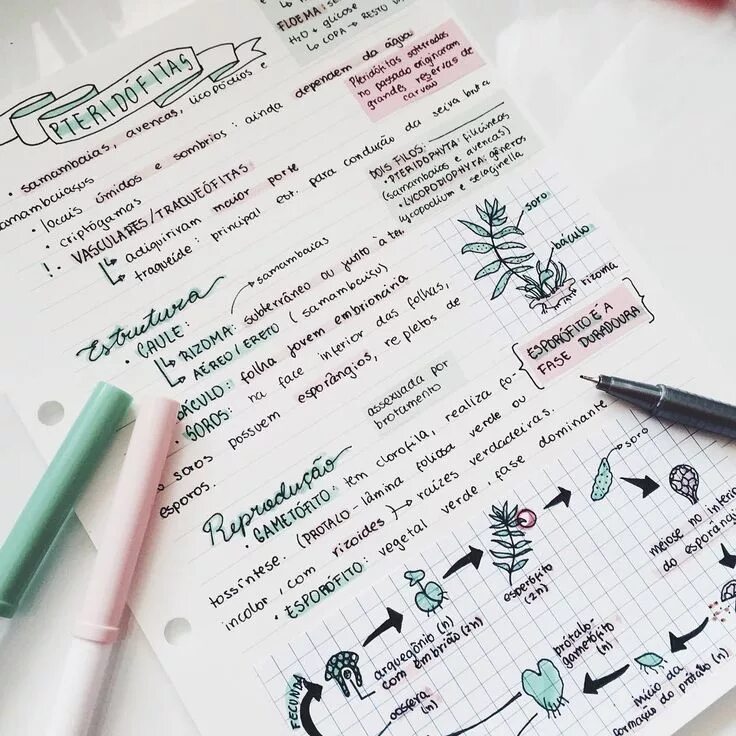 FLOEMA: se
H₂O + glicose
↳ COPA → RESTO D
PTERIDÓFITAS
• samambaias, avencas, licopódios e
amambaiaçus
• locais úmidos e sombrios: ainda dependem da água
• criptógamas
!. VASCULARES/TRAQUEÓFITAS
↳ adiquiriram maior porte
↳ traqueíde: principal est. para condução da seiva bruta
Pteridófitas soterradas
no passado originaram
grandes reservas de
carvão
DOIS FILOS:
• PTERIDOPHYTA: filicíneas
(samambaias e avencas)
• LYCOPODIOPHYTA: gêneros
lycopodium e selaginella
Estrutura
• CAULE: samambaias
↳ RIZOMA: subterrâneo ou junto à ter.
↳ AÉREO/ERETO (samambaiaçu)
BÁCULO: folha jovem embrionária
• SOROS: na face inferior das folhas,
os soros possuem esporângios, repletos de
esporos.
soro
báculo
rizoma
ESPORÓFITO É A
FASE DURADOURA
assexuada por
brotamento
Reprodução
• GAMETÓFITO: tem clorofila, realiza fo-
tossíntese. (PROTALO - lâmina foliosa verde ou
incolor, com rizoides) → raízes verdadeiras.
• ESPORÓFITO: vegetal verde, fase dominante
soro
meiose no interi
do esporângi
esporófito
(2n)
arquegônio (n)
com embrião (2n)
FECUNDA
oosfera
(n)
prótalo-
gametófito
(n)
início da
formação do prótalo (n)